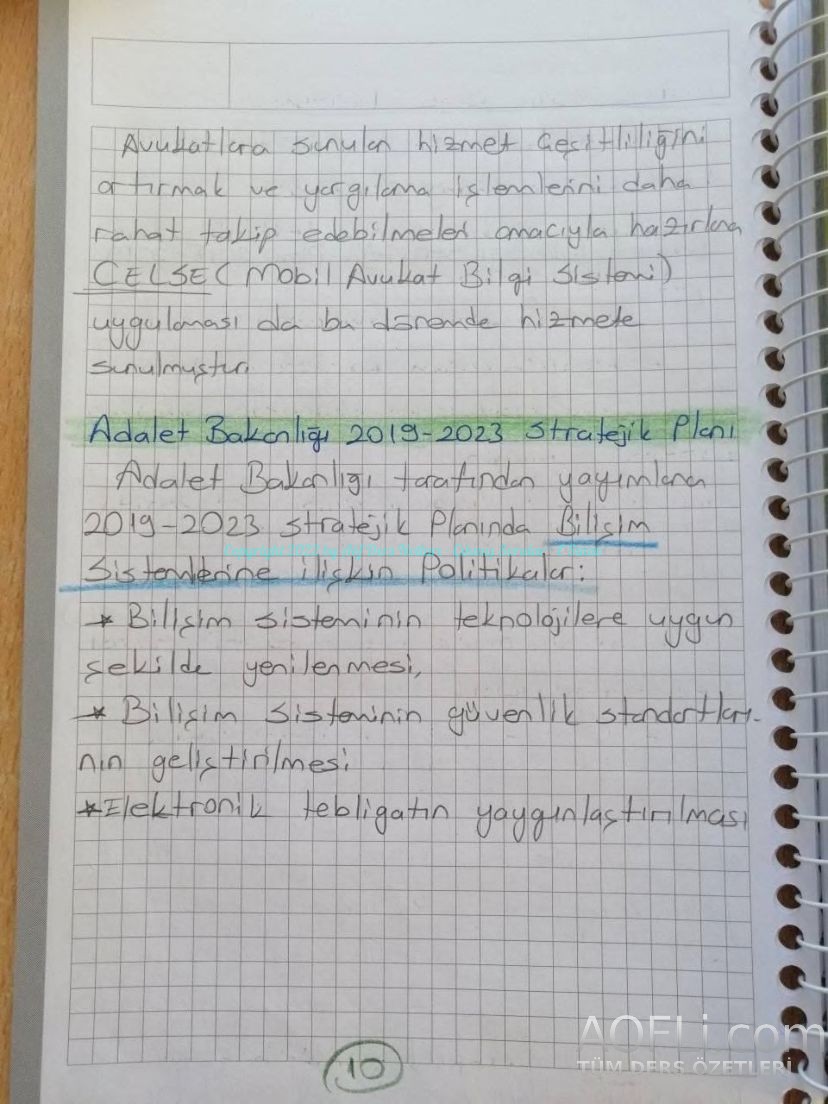 Avukatlara sunulan hizmet çeşitliliğini
artırmak ve yargılama işlemlerini daha
rahat takip edebilmeleri amacıyla hazırlana
CELSE (Mobil Avukat Bilgi Sistemi)
uygulaması da bu dönemde hizmete
sunulmuştur.
Adalet Bakanlığı 2019-2023 Stratejik Planı
Adalet Bakanlığı tarafından yayımlanan
2019-2023 Stratejik Planında Bilişim
Sistemlerine ilişkin Politikalar:
* Bilişim sisteminin teknolojilere uygun
şekilde yenilenmesi,
* Bilişim Sisteminin güvenlik standartları-
nın geliştirilmesi
* Elektronik tebligatın yaygınlaştırılması
10
AOFLi.com
TÜM DERS ÖZETLERİ